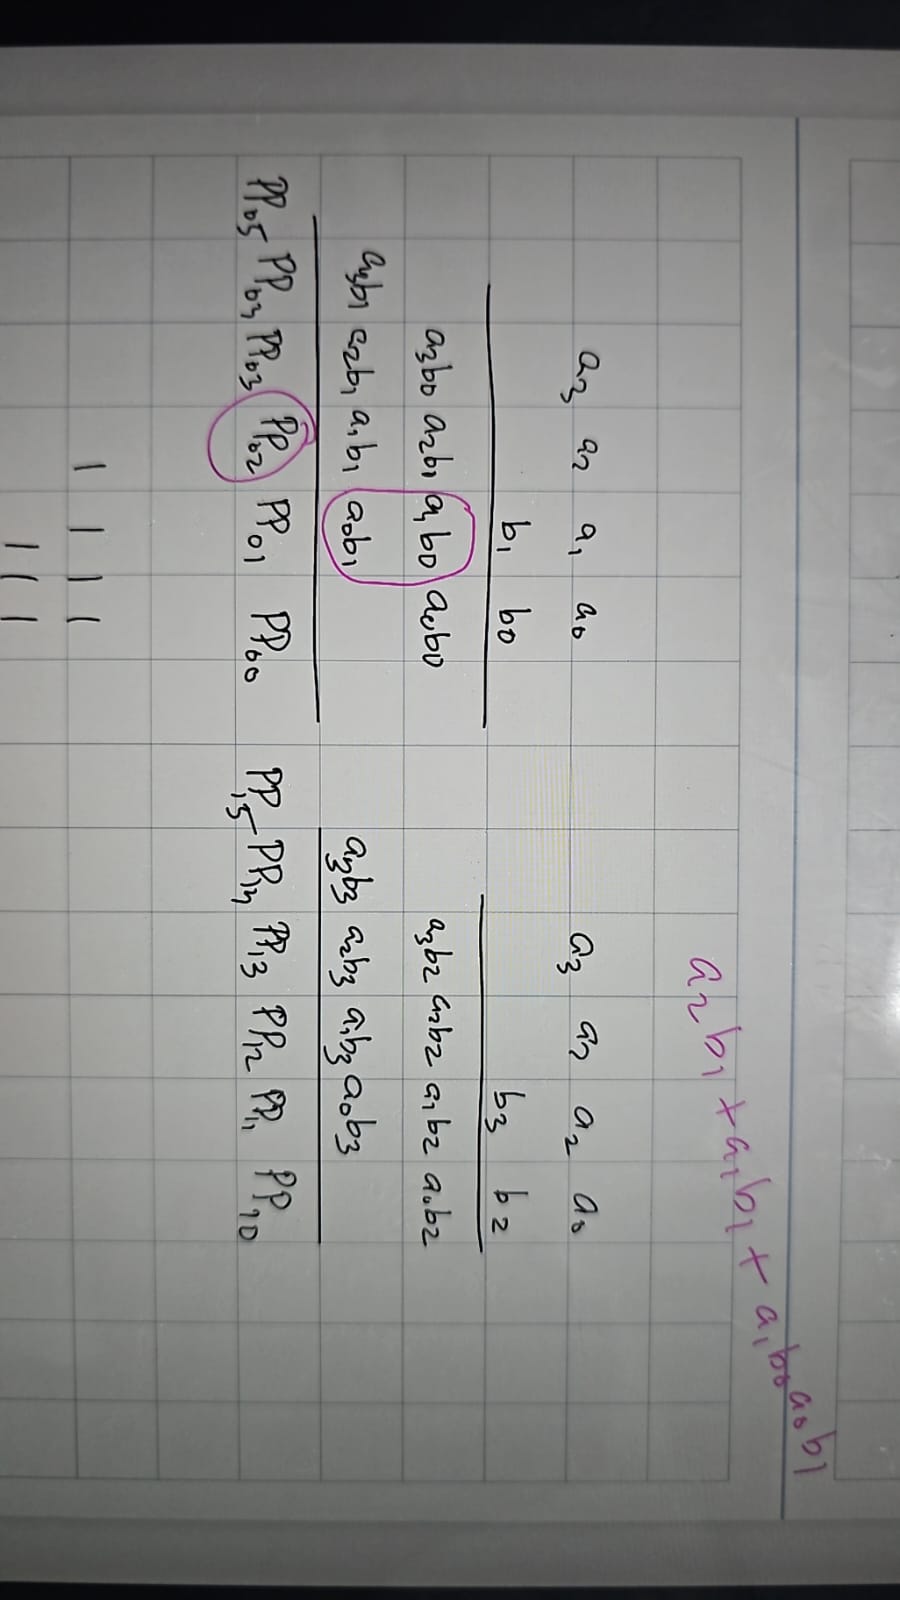 a2b1 + a1b1 + a1b0a0b1
a3 a2 a1 a0
b1 b0
a3b0 a2b1 a1b0 a0b0
a3b1 a2b1 a1b1 a0b1
PP05 PP03 PP03 PP02 PP01 PP00
a3 a2 a2 a0
b3 b2
a3b2 a2b2 a1b2 a0b2
a3b3 a2b3 a1b3 a0b3
PP15 PP14 PP13 PP12 PP11 PP10
1 1 1 1
1 1 1